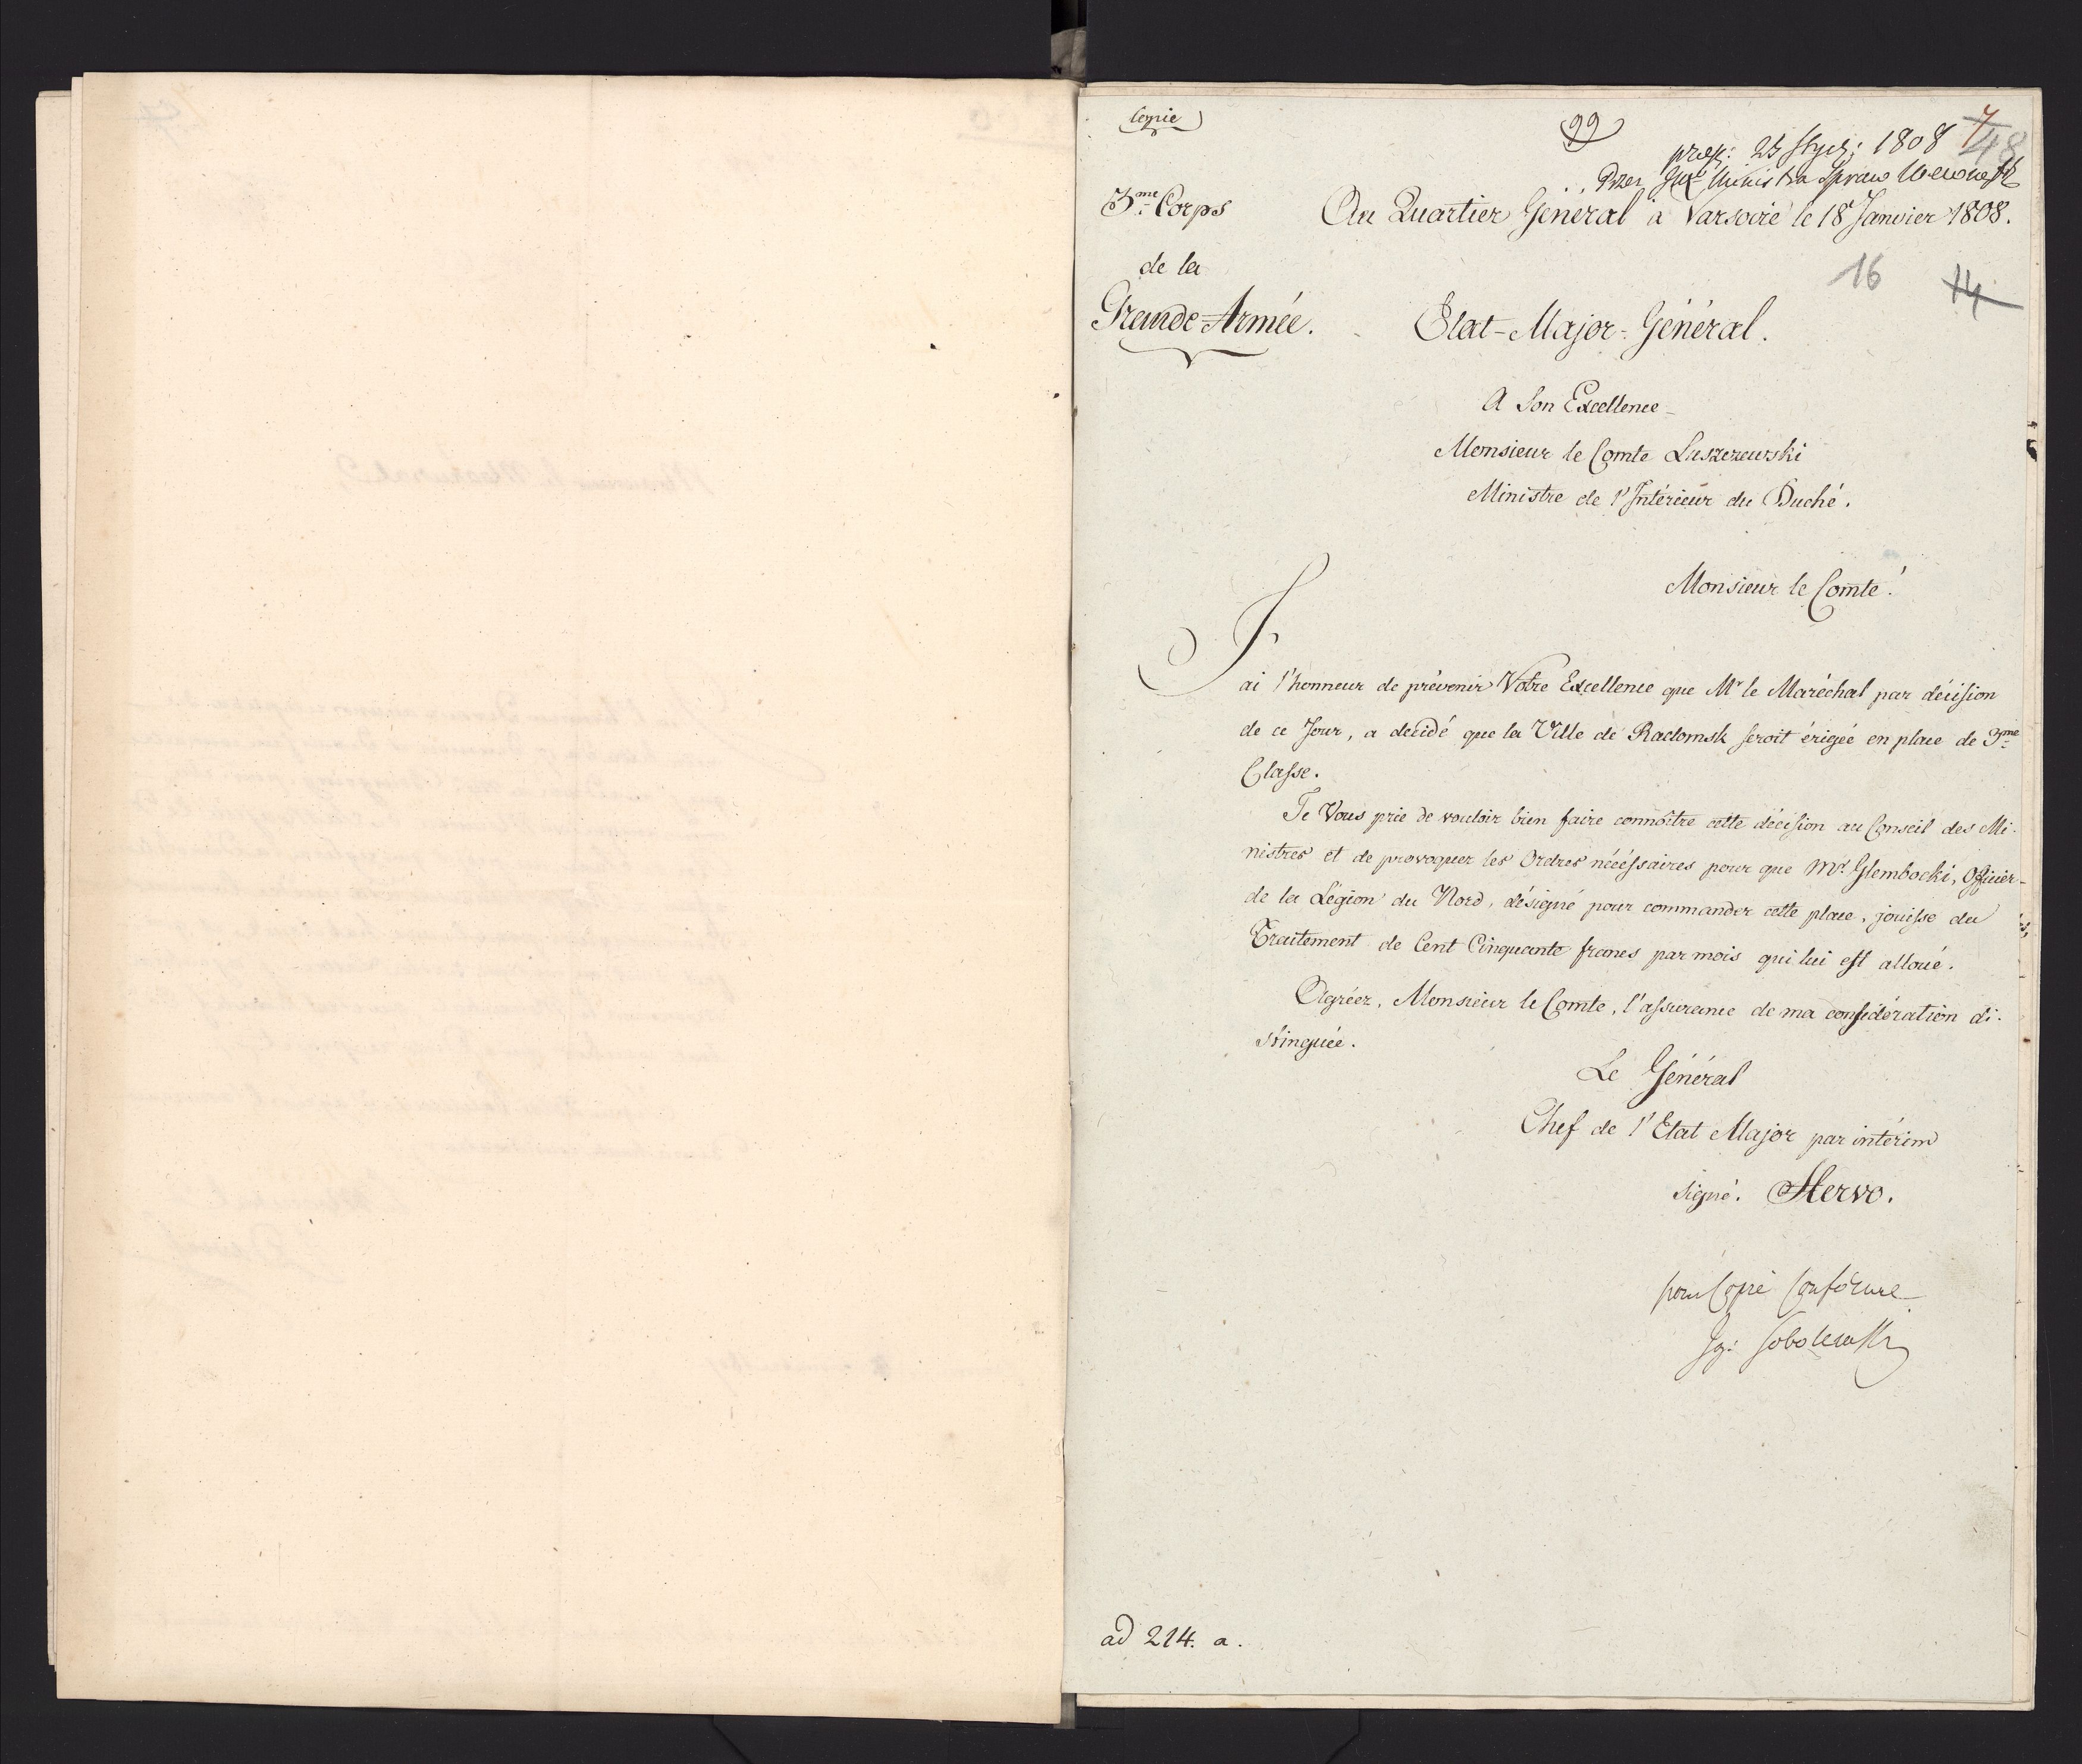 Copie
99
7
48
præs: 23 Stycz: 1808
Przez JW Ministra Spraw Wewnętr
3me Corps
Au Quartier Général à Varsovie le 18 Janvier 1808.
de la
16 14
Grande-Armée.
Etat-Major-Général.
A Son Excellence
Monsieur le Comte Luszczewski
Ministre de l'Intérieur du Duché.
Monsieur le Comte!
J'ai l'honneur de prévenir Votre Excellence que Mr le Maréchal par décision
de ce Jour, a decidé que la Ville de Radomsk seroit érigée en place de 3me
Classe.
Je Vous prie de vouloir bien faire connoître cette décision au Conseil des Mi-
nistres et de provoquer les Ordres nécéssaires pour que Mr. Glembocki, Officier
de la Légion du Nord, désigné pour commander cette place, jouisse du
Traitement de Cent Cinquante francs par mois qui lui est alloué.
Agréez, Monsieur le Comte, l'assurance de ma considération di-
stinguée.
Le Général
Chef de l'Etat Major par intérim
signé. Hervo.
pour Copie Conforme
Ig: Sobolewski
ad 214. a.